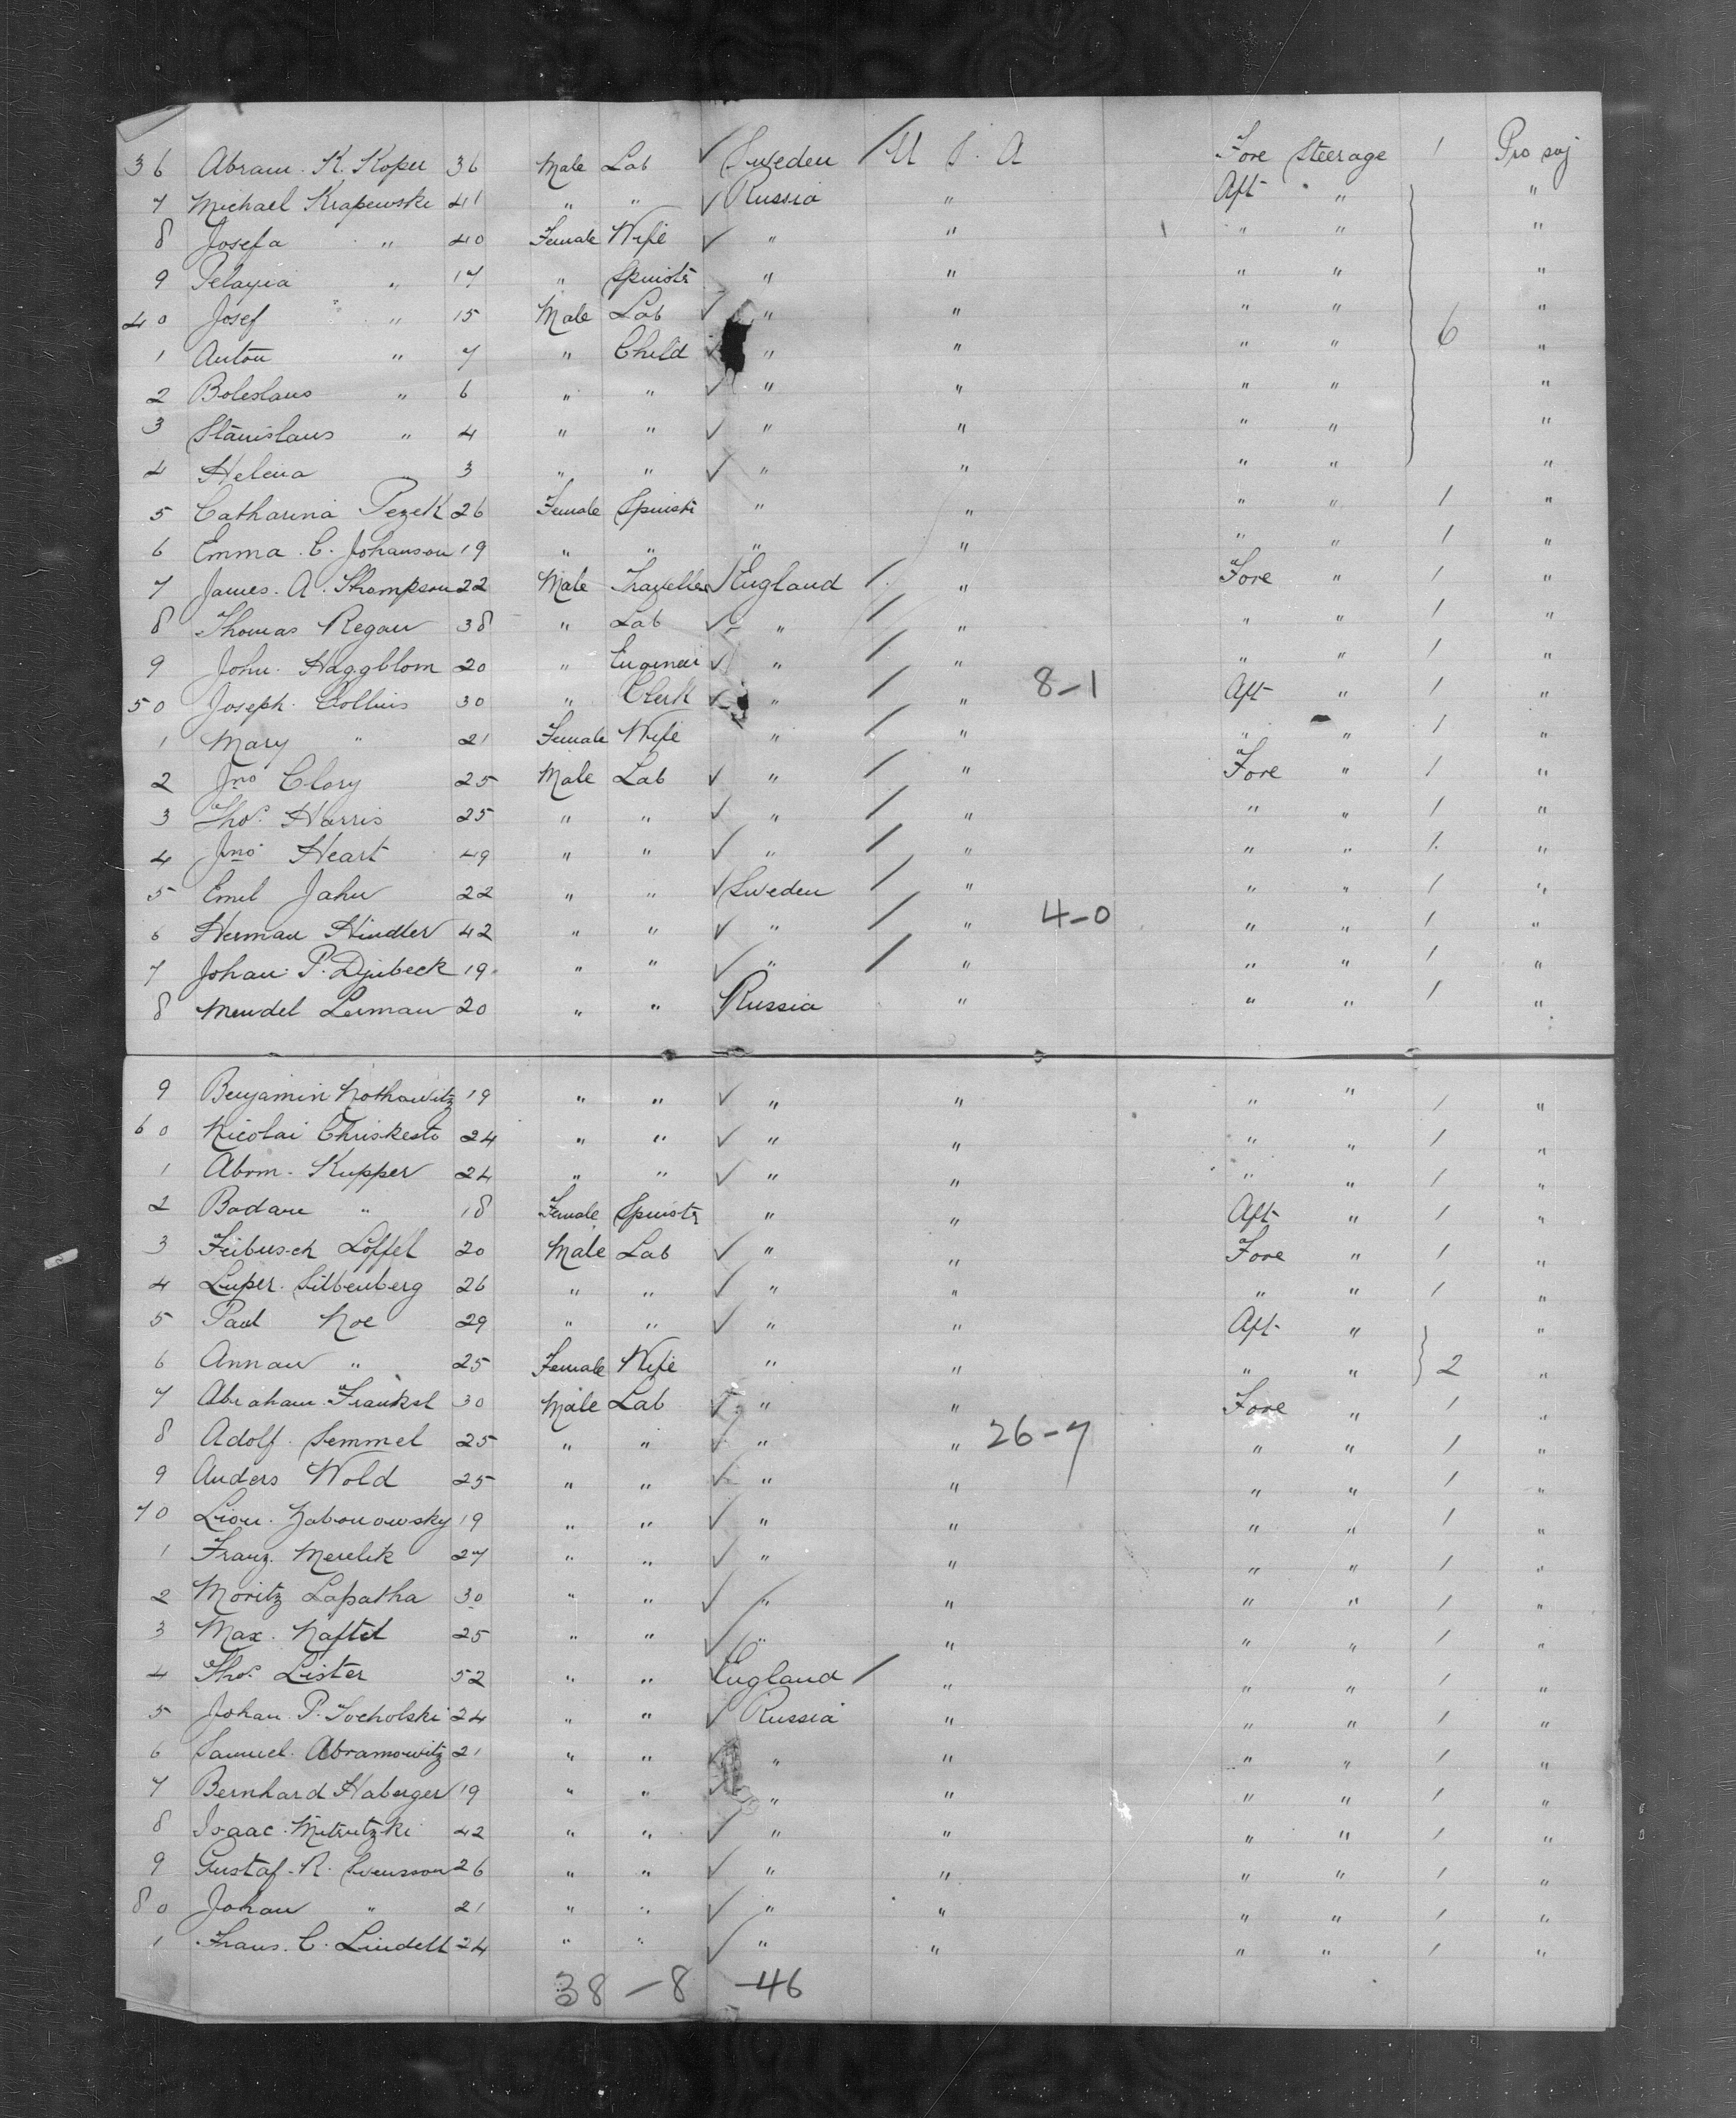 36 Abram. K. Koper 36 Male Lab Sweden U S. A Fore Steerage 1 Pro soj
7 Michael Krapewski 41 " " Russia " Aft " "
8 Josefa " 40 Female Wife " " " " "
9 Pelagia " 17 " Spinstr " " " " "
40 Josef " 15 Male Lab " " " " 6 "
1 Anton " 7 " Child " " " " "
2 Boleslaus " 6 " " " " " " "
3 Stanislaus " 4 " " " " " " "
4 Helena 3 " " " " " " "
5 Catharina Pezek 26 Female Spinstr " " " " 1 "
6 Emma. C. Johanson 19 " " " " " " 1 "
7 James. A. Thompson 22 Male Traveller England " Fore " 1 "
8 Thomas Regan 38 " Lab " " " " 1 "
9 John. Haggblom 20 " Engineer " " " " 1 "
50 Joseph. Collins 30 " Clerk " " 8-1 Aft " 1 "
1 Mary " 21 Female Wife " " " " 1 "
2 Jno Clory 25 Male Lab " " Fore " 1 "
3 Thos. Harris 25 " " " " " " 1 "
4 Jno. Heart 49 " " " " " " 1. "
5 Emil Jahn 22 " " Sweden " " " 1 "
6 Herman Hindler 42 " " " " 4-0 " " 1 "
7 Johan. P. Djubeck 19 " " " " " " 1 "
8 Mendel Lerman 20 " " Russia " " " 1 "
9 Benjamin Nothawitz 19 " " " " " " 1 "
60 Nicolai Chriskesto 24 " " " " " " 1 "
1 Abrm. Kupper 24 " " " " " " 1 "
2 Badane " 18 Female Spinstr " " Aft " 1 "
3 Feibusch Löffel 20 Male Lab " " Fore " 1 "
4 Luper. Silbenberg 26 " " " " " " 1 "
5 Paul Noe 29 " " " " Aft " "
6 Annan " 25 Female Wife " " " " 2 "
7 Abraham. Frankel 30 Male Lab " " Fore " 1 "
8 Adolf. Semmel 25 " " " " 26-7 " " 1 "
9 Anders Wold 25 " " " " " " 1 "
70 Lion. Zabonowsky 19 " " " " " " 1 "
1 Franz. Merelik 27 " " " " " " 1 "
2 Moritz Lapatha 30 " " " " " " 1 "
3 Max. Naftel 25 " " " " " " 1 "
4 Thos. Lister 52 " " England " " " 1 "
5 Johan. P. Socholski 24 " " Russia " " " 1 "
6 Samuel. Abramowitz 21 " " " " " " 1 "
7 Bernhard Haberger 19 " " " " " " 1 "
8 Isaac. Mitritzki 42 " " " " " " 1 "
9 Gustaf. R. Svensson 26 " " " " " " 1 "
80 Johan " 21 " " " " " " 1 "
1 Frans. C. Lindell 24 " " " " " " 1 "
38 - 8 - 46